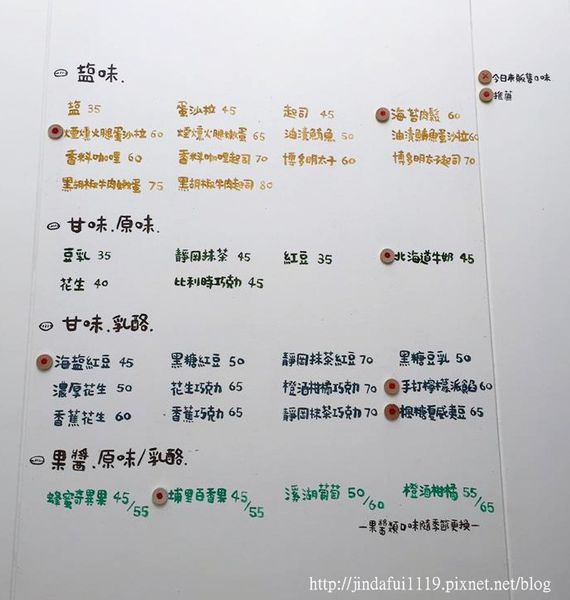 塩味.
今日未販售口味
推薦
塩 35 蛋沙拉 45 起司 45 海苔肉鬆 60
煙燻火腿蛋沙拉 60 煙燻火腿嫩蛋 65 油漬鮪魚 50 油漬鮪魚蛋沙拉 60
香料咖哩 60 香料咖哩起司 70 博多明太子 60 博多明太子起司 70
黑胡椒牛肉嫩蛋 75 黑胡椒牛肉起司 80
甘味.原味.
豆乳 35 靜岡抹茶 45 紅豆 35 北海道牛奶 45
花生 40 比利時巧克力 45
甘味.乳酪.
海塩紅豆 45 黑糖紅豆 50 靜岡抹茶紅豆 70 黑糖豆乳 50
濃厚花生 50 花生巧克力 65 橙酒柑橘巧克力 70 手打檸檬派餡 60
香蕉花生 60 香蕉巧克力 65 靜岡抹茶巧克力 70 楓糖夏威夷豆 65
果醬.原味/乳酪.
蜂蜜奇異果 45/55 埔里百香果 45/55 溪湖葡萄 50/60 橙酒柑橘 55/65
—果醬類口味隨季節更換—
http://jindafui1119.pixnet.net/blog